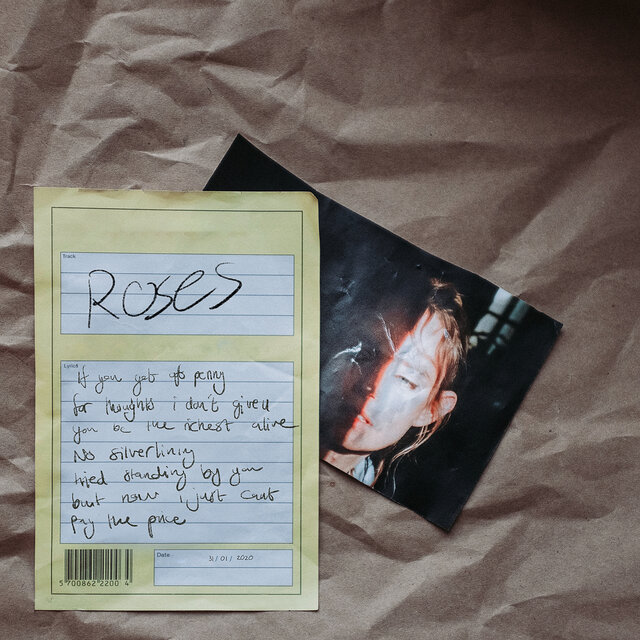 Track
Roses
Lyrics
If you get a penny
for thoughts i don't give u
you be the richest alive
No silverlining
tried standing by you
but now i just cant
pay the price
5 700862 2200 4
Date
31/01/2020